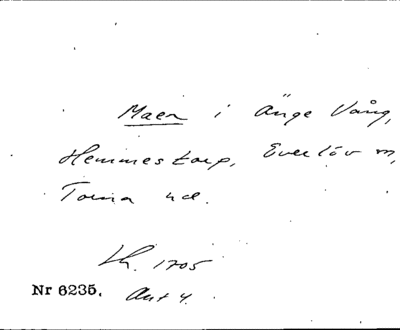 Maen i Änge Vång,
Hemmestorp, Everlöv m,
Torna hd.
Lh. 1705
Nr 6235. Akt 4.